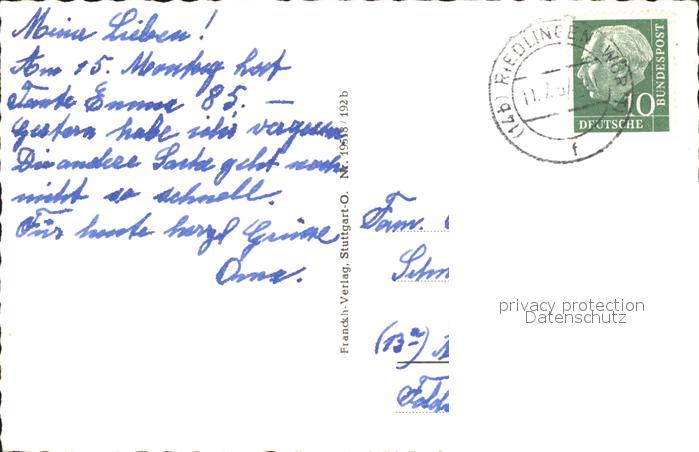 Meine Lieben!
Am 15. Monntag hat
Tante Emma 85. —
Gestern habe ich's vergessen
Die andere Sache geht noch
nicht so schnell.
Für heute herzl Grüsse
Oma.
Franckh-Verlag, Stuttgart-O. Nr. 19618/192 b
(14b) RIEDLINGEN WÜR
11.7.57
f
10
DEUTSCHE
BUNDESPOST
Fam.
Schm
(13a)
privacy protection
Datenschutz